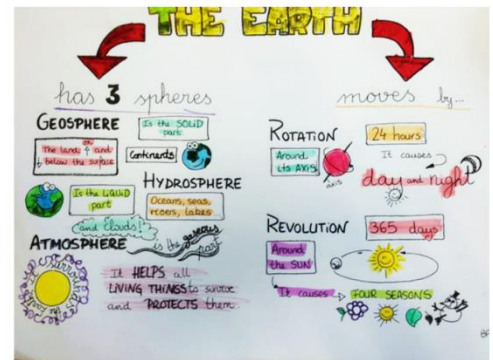 THE EARTH
has 3 spheres
GEOSPHERE
Is the SOLID
part
The land on and
below the surface
Continents
HYDROSPHERE
Is the LIQUID
part
Oceans, seas,
rivers, lakes
and clouds!
ATMOSPHERE
is the gaseous
part
Surrounds
the Earth
It HELPS all
LIVING THINGS to survive
and PROTECTS them.
moves by...
ROTATION
24 hours
Around
its AXIS
axis
It causes
day and night
REVOLUTION
365 days
Around
the SUN
It causes
FOUR SEASONS